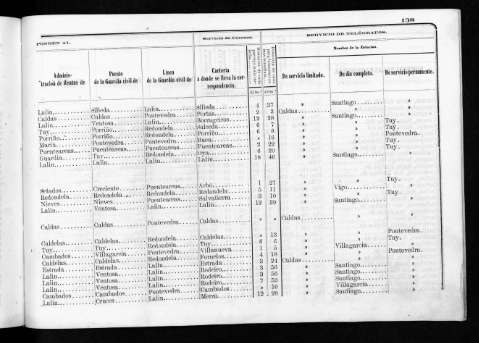 138
PONDEN AL
Servicio de Correos.
SERVICIO DE TELÉGRAFOS.
Nombre de la Estación.
Administración de Rentas de
Puesto de la Guardia civil de
Línea de la Guardia civil de
Cartería a donde se lleva la correspondencia.
De servicio limitado.
De día completo.
De servicio permanente.
Lalín Silleda Lalín Silleda 4 27 » Santiago »
Caldas Caldas Pontevedra Portas 2 3 Caldas » »
Lalín Ventosa Lalín 12 28 » Santiago »
Tuy Porriño Redondela Salceda 6 7 » » Tuy
Porriño Porriño Redondela 6 9 » » Tuy
Marín Pontevedra Pontevedra » » Pontevedra
Puenteareas Puenteareas Puenteareas 2 22 » » Tuy
Guardia Tuy Redondela 4 20 » » Tuy
Lalín Lalín Lalín Lalín 18 40 » Santiago »
Setados Creciente Puenteareas Arbo 1 27 » » Tuy
Redondela Redondela Redondela Redondela 5 11 » Vigo »
Nieves Nieves Puenteareas Salvatierra 3 10 » » Tuy
Lalín Ventosa Lalín Lalín 12 39 » Santiago »
Caldas Caldas Pontevedra Caldas » » Caldas » »
Caldelas Caldelas Redondela Caldelas » 13 » » Pontevedra
Tuy Tuy Redondela Tuy 6 6 » » Tuy
Cambados Villagarcía Pontevedra Villanueva 1 5 » Villagarcía »
Caldelas Caldelas Redondela Fornelos 4 18 » » Pontevedra
Estrada Estrada Lalín Estrada 3 24 Caldas » »
Lalín Ventosa Lalín Rodeiro 3 56 » Santiago »
Lalín Ventosa Lalín Rodeiro 3 56 » Santiago »
Lalín Ventosa Lalín Rodeiro 7 55 » Santiago »
Cambados Cambados Pontevedra Cambados » 10 » Villagarcía »
Lalín Cruces Lalín Merza 12 26 » Santiago »